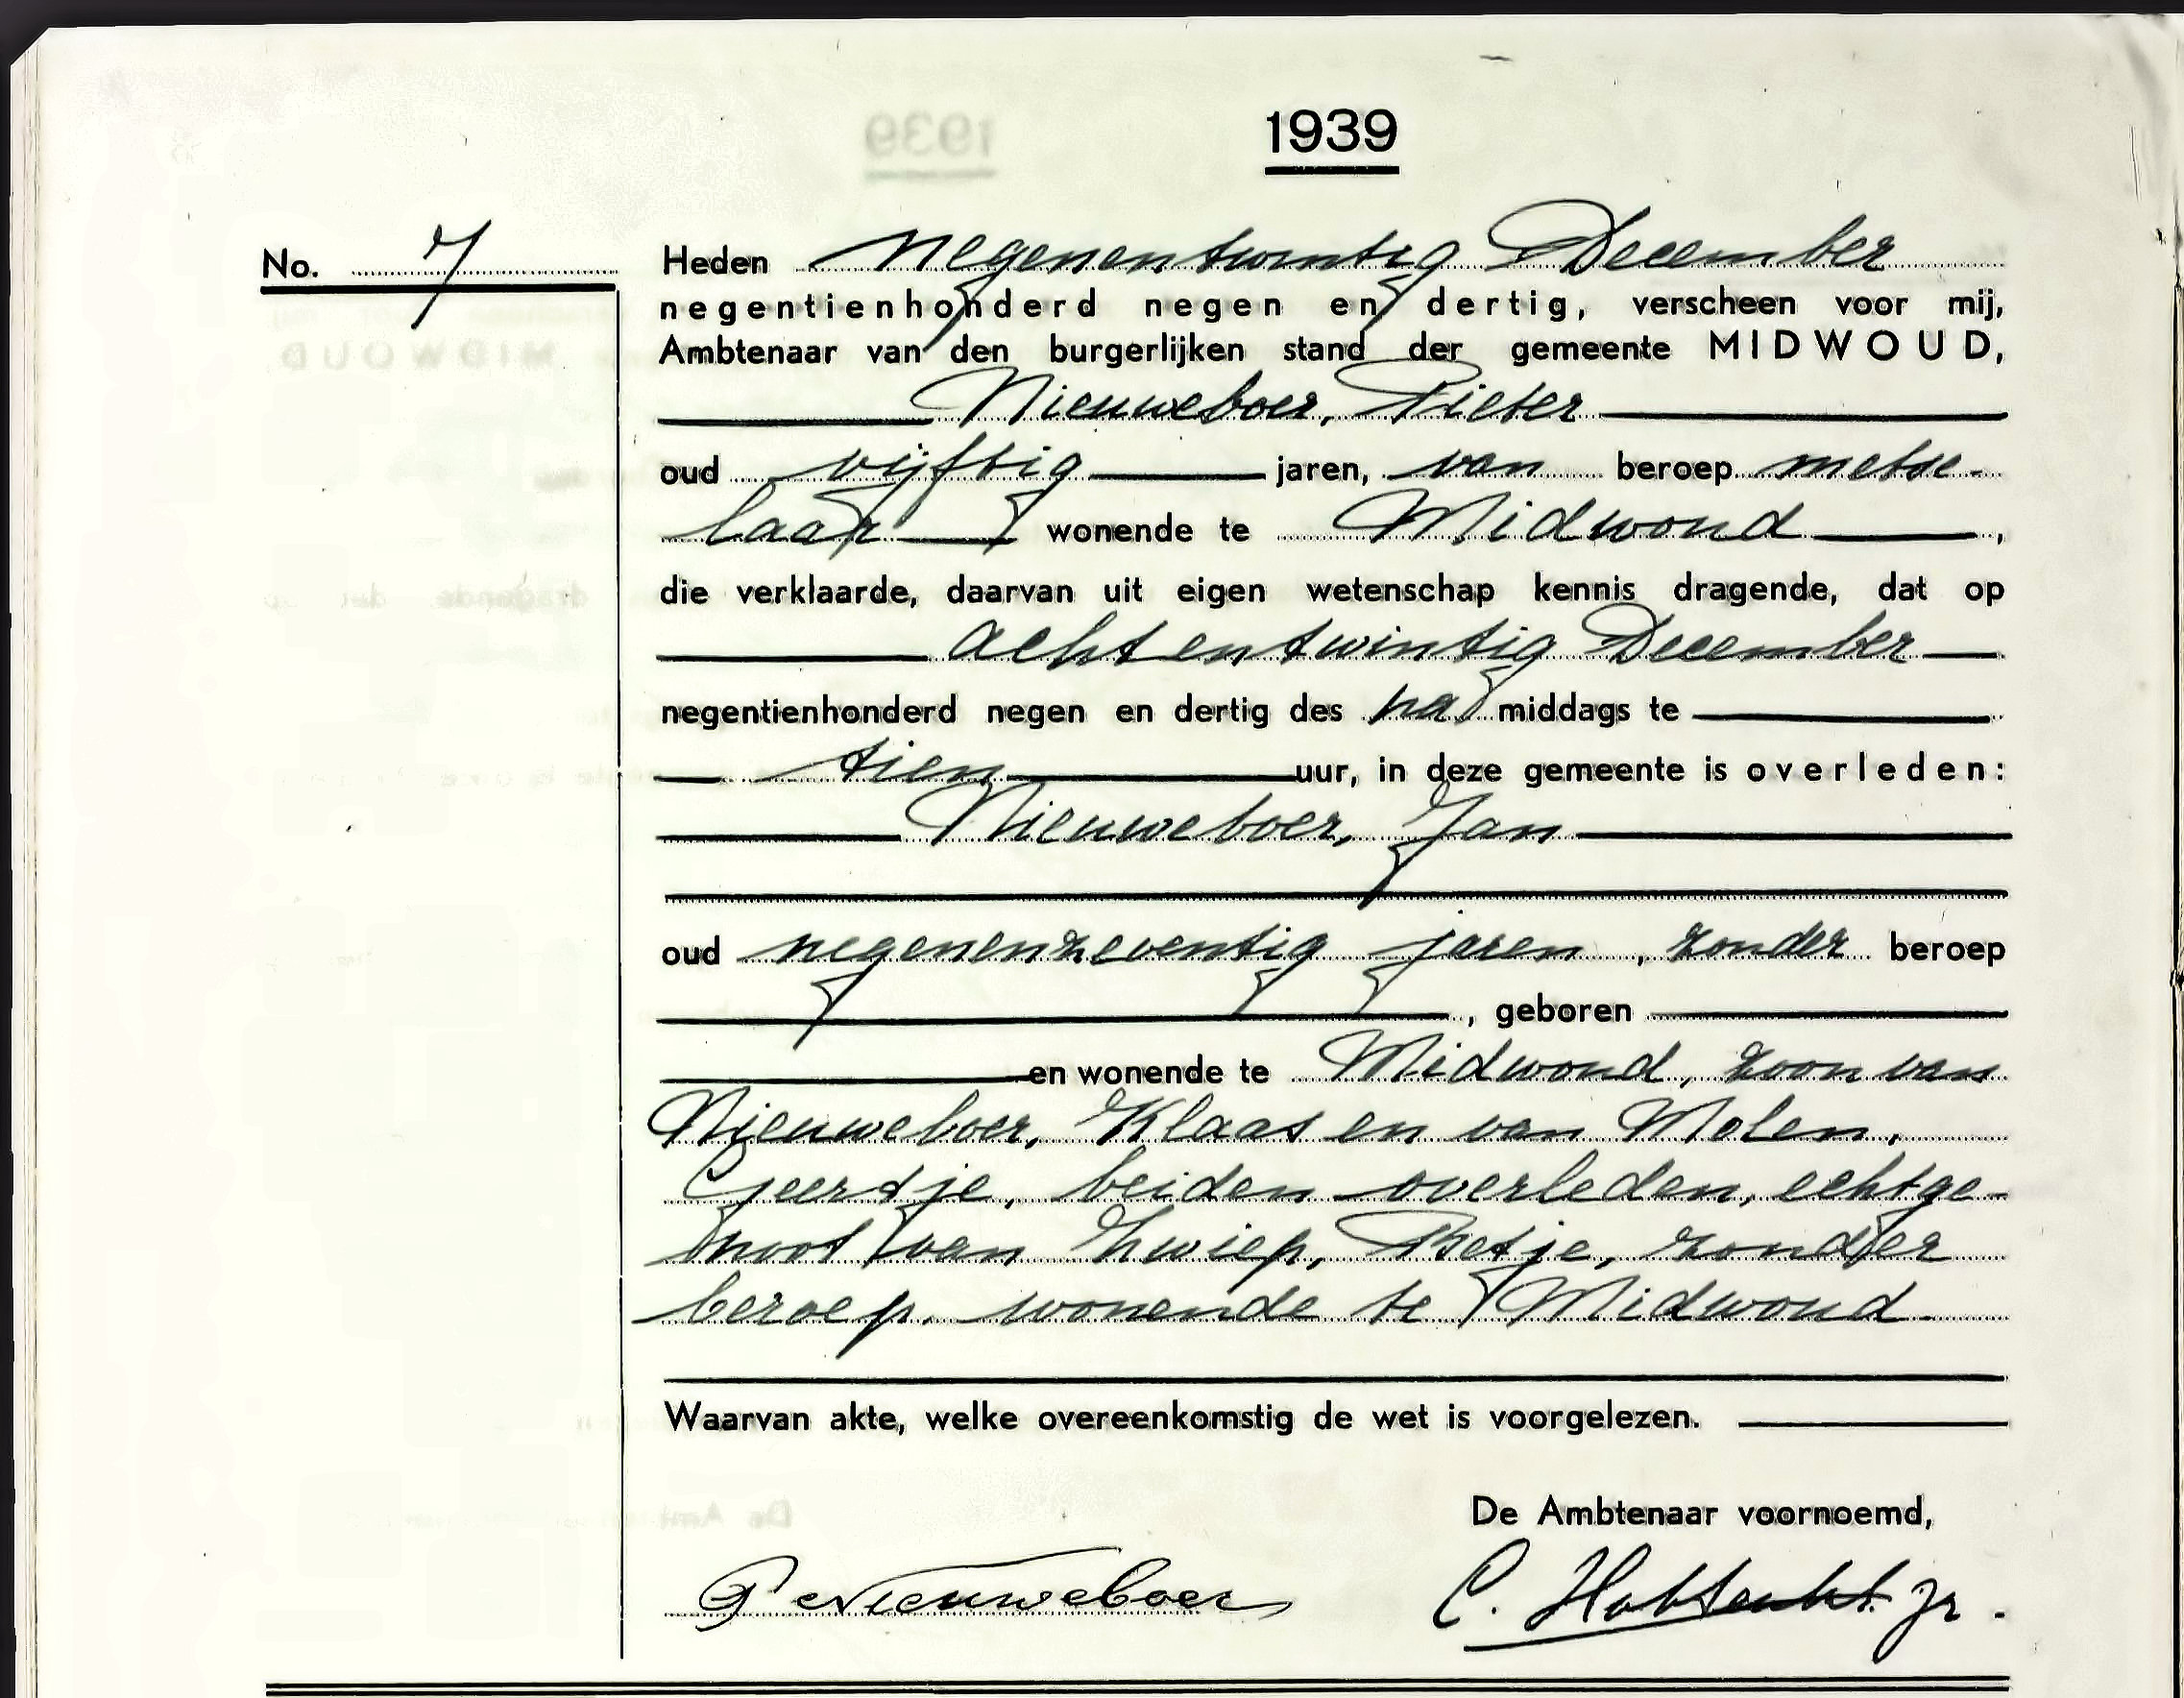 1939
No. 7
Heden negenentwintig December
negentienhonderd negen en dertig, verscheen voor mij,
Ambtenaar van den burgerlijken stand der gemeente MIDWOUD,
Nieuweboer, Pieter
oud vijftig jaren, van beroep metse-
laar wonende te Midwoud,
die verklaarde, daarvan uit eigen wetenschap kennis dragende, dat op
achtentwintig December
negentienhonderd negen en dertig des na middags te
tien uur, in deze gemeente is overleden:
Nieuweboer, Jan
oud negenenzeventig jaren, zonder beroep
, geboren
en wonende te Midwoud, zoon van
Nieuweboer, Klaas en van Molen,
Geertje, beiden overleden, echtge-
noot van Zwiep, Betje, zonder
beroep, wonende te Midwoud.
Waarvan akte, welke overeenkomstig de wet is voorgelezen.
De Ambtenaar voornoemd,
P Nieuweboer C. Jr.